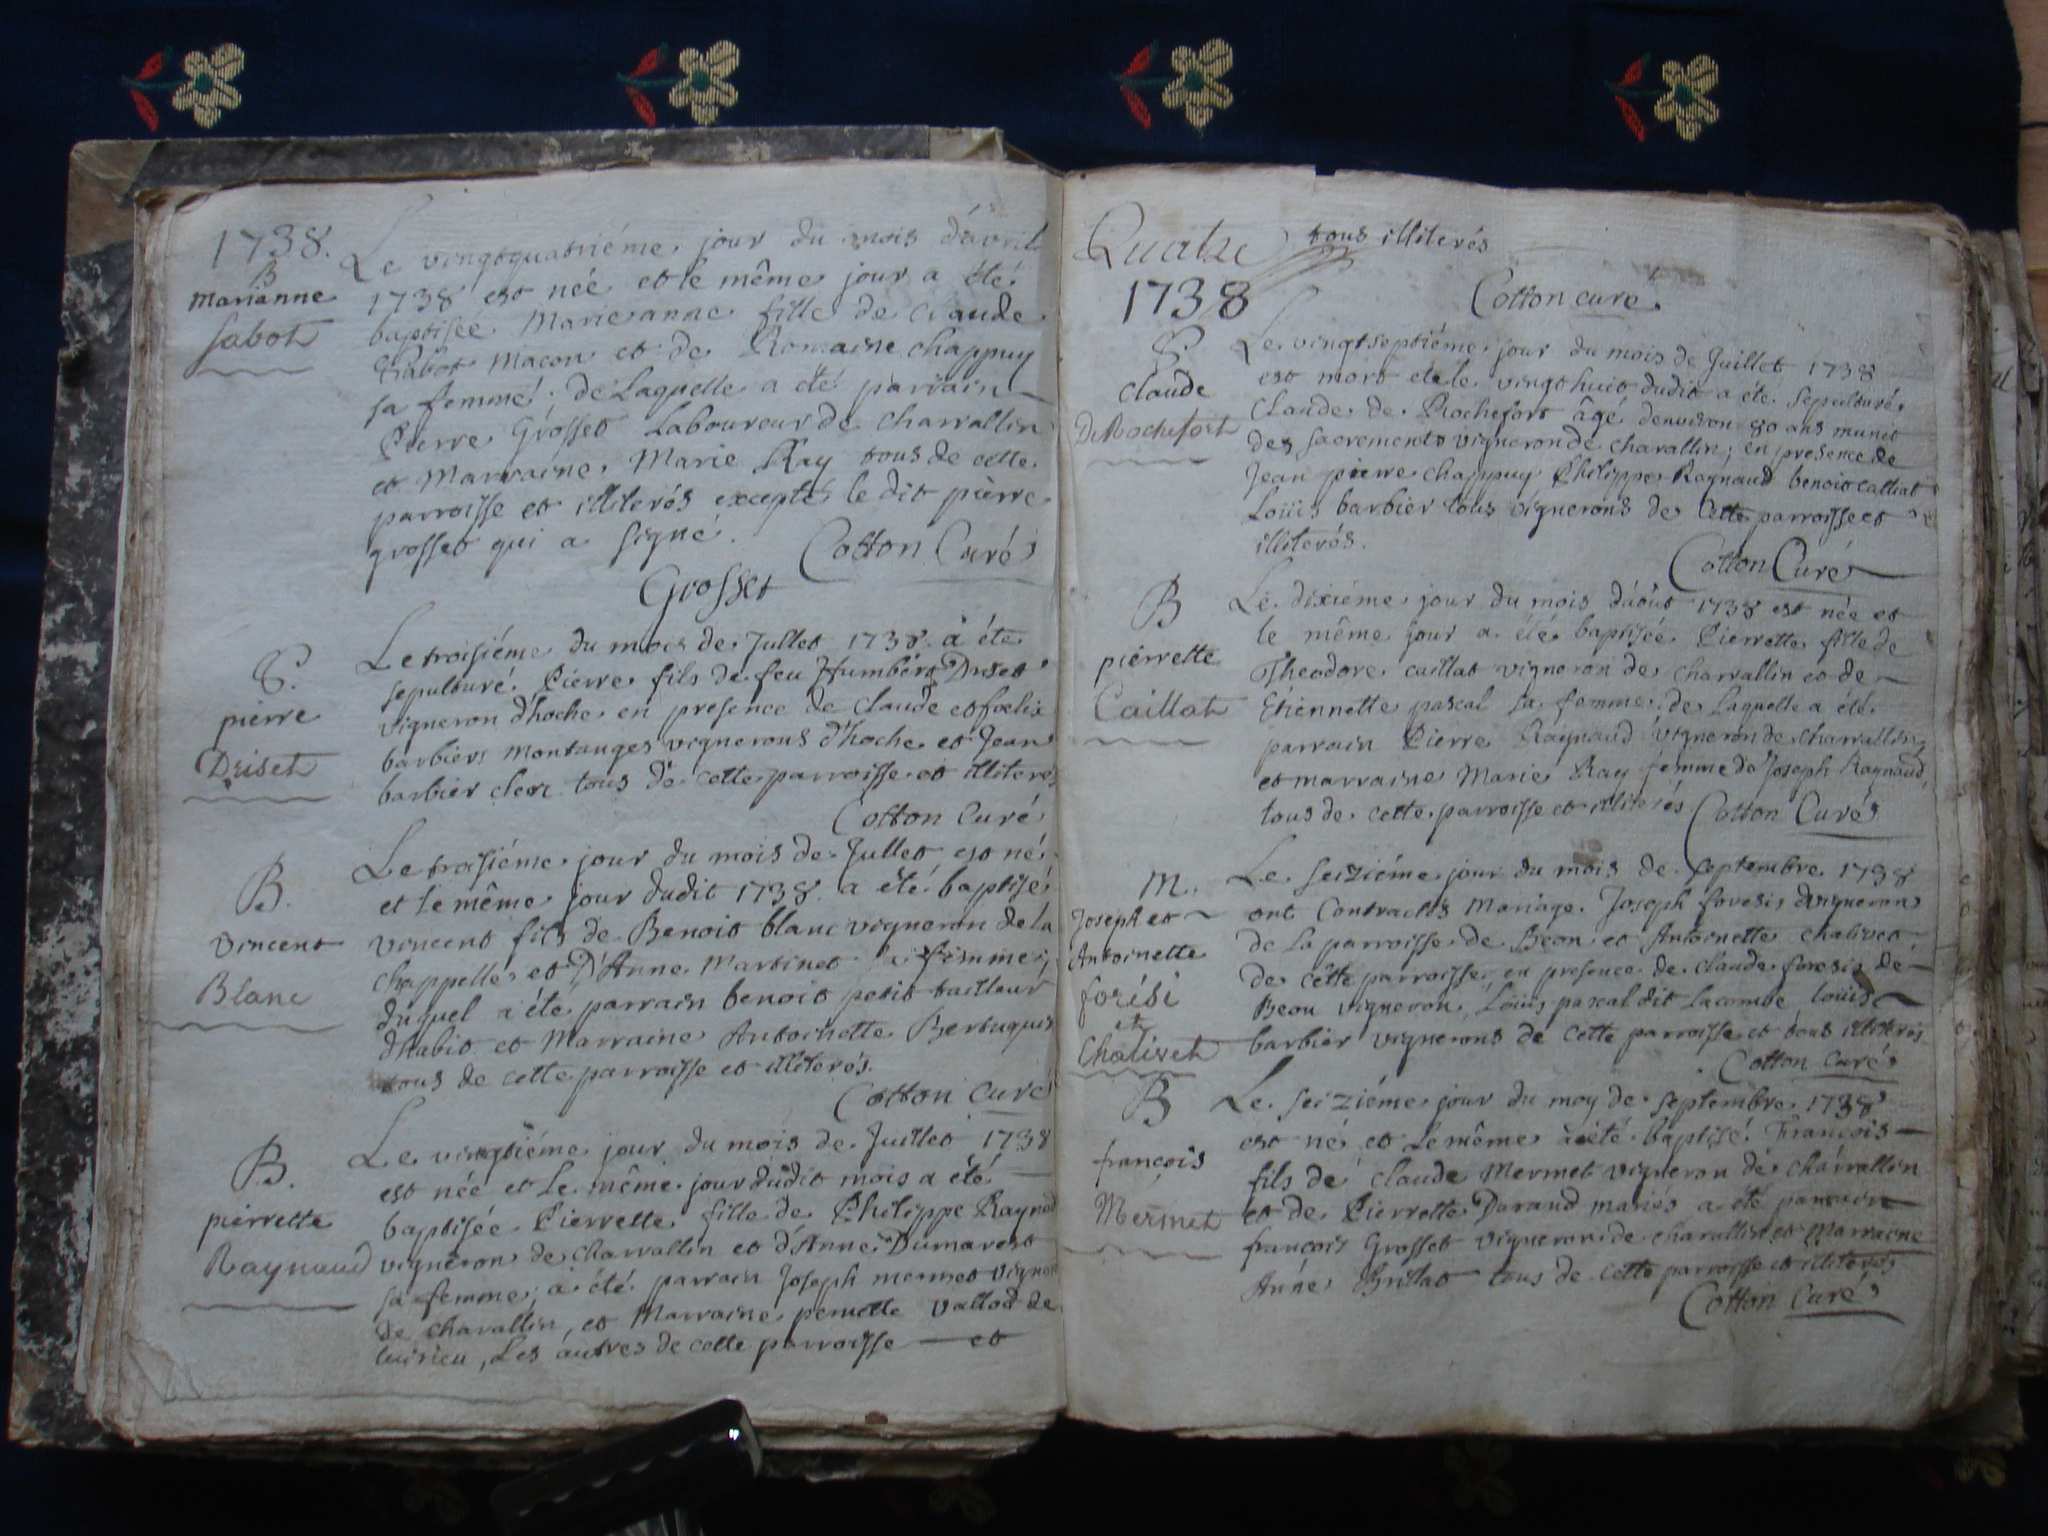 1738.
B
Marianne
Sabot
Le vingtquatriéme jour du mois d'avril
1738 est née et le même jour a été
baptisée Marieanne fille de Claude
Sabot Macon et de Romaine chappuy
sa femme. de Laquelle a été parrain
Pierre Grosset Laboureur de Charvallin
et Marraine Marie Ray tous de cette
parroisse et illiterés excepté le dit pierre
grosset qui a signé.
Cotton Curé
Grosset
S.
pierre
Driset
Le troisiéme du mois de Jullet 1738 a été
sepulturé Pierre fils de feu Humbert Driset
vigneron d'hoche en presence de Claude et foelix
barbiers montanges vignerons d'hoche et Jean
barbier clerc tous de cette parroisse et illiterés
Cotton Curé
B.
Vincent
Blanc
Le troisiéme jour du mois de Jullet est né
et le même jour dudit 1738 a été baptisé
vincent fils de Benoit blanc vigneron de la
chappelle et D'Anne Martinet femme,
duquel a été parrain benoit petit tailleur
d'habit et Marraine Antoinette
tous de cette parroisse et illiterés.
Cotton Curé
B.
pierrette
Raynaud
Le vingtiéme jour du mois de Juillet 1738
est née et le même jour dudit mois a été
baptisée Pierrette fille de Philippe Raynod
vigneron de charvallin et d'Anne Dumarest
sa femme, a été parrain Joseph mermet vigneron
de charallin, et Marraine pernette vallod de
luirieu, Les autres de cette parroisse et
Quatre tous illiterés
1738
Cotton curé
S.
Claude
De Rochefort
Le vingtseptiéme jour du mois de Juillet 1738
est mort et le vingthuit dudit a été sepulturé
Claude de Rochefort âgé denviron 80 ans munit
des sacrements vigneron de charallin, en presence de
Jean pierre chappuy Philippe Raynaud benoit calliat
Loüis barbier tous vignerons de cette parroisse et
illiterés.
Cotton Curé
B
pierrette
Caillat
Le dixiéme jour du mois d'août 1738 est née et
le même jour a été baptisée Pierrette fille de
Theodore caillat vigneron de charvallin et de
Etiennette pascal sa femme; de Laquelle a été
parrain Pierre Raynaud vigneron de charvallin
et marraine Marie Ray femme de Joseph Raynaud
tous de cette parroisse et illiterés Cotton Curé
M.
Joseph et
Antoinette
forési
et
Chalivet
Le seiziéme jour du mois de septembre 1738
ont Contractés Mariage Joseph foresi vigneron
de la parroisse de Beon et Antoinette chalivet
de cette parroisse en presence de claude foresi de
Beon vigneron, Loüis pascal dit Lacombe loüis
barbier vignerons de cette parroisse et tous illiterés
Cotton curé
B
françois
Mermet
Le seiziéme jour du moy de septembre 1738
est né et le même a été baptisé François
fils de claude Mermet vigneron de charvallin
et de Pierrette Durand mariés a été parrain
françois Grosset vigneron de charallin et Marraine
Anne Brillat tous de cette parroisse et illiterés
Cotton Curé